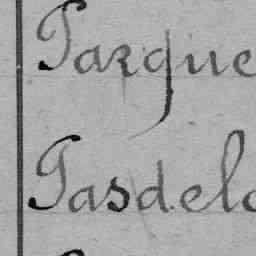 Parque
Pasdelo